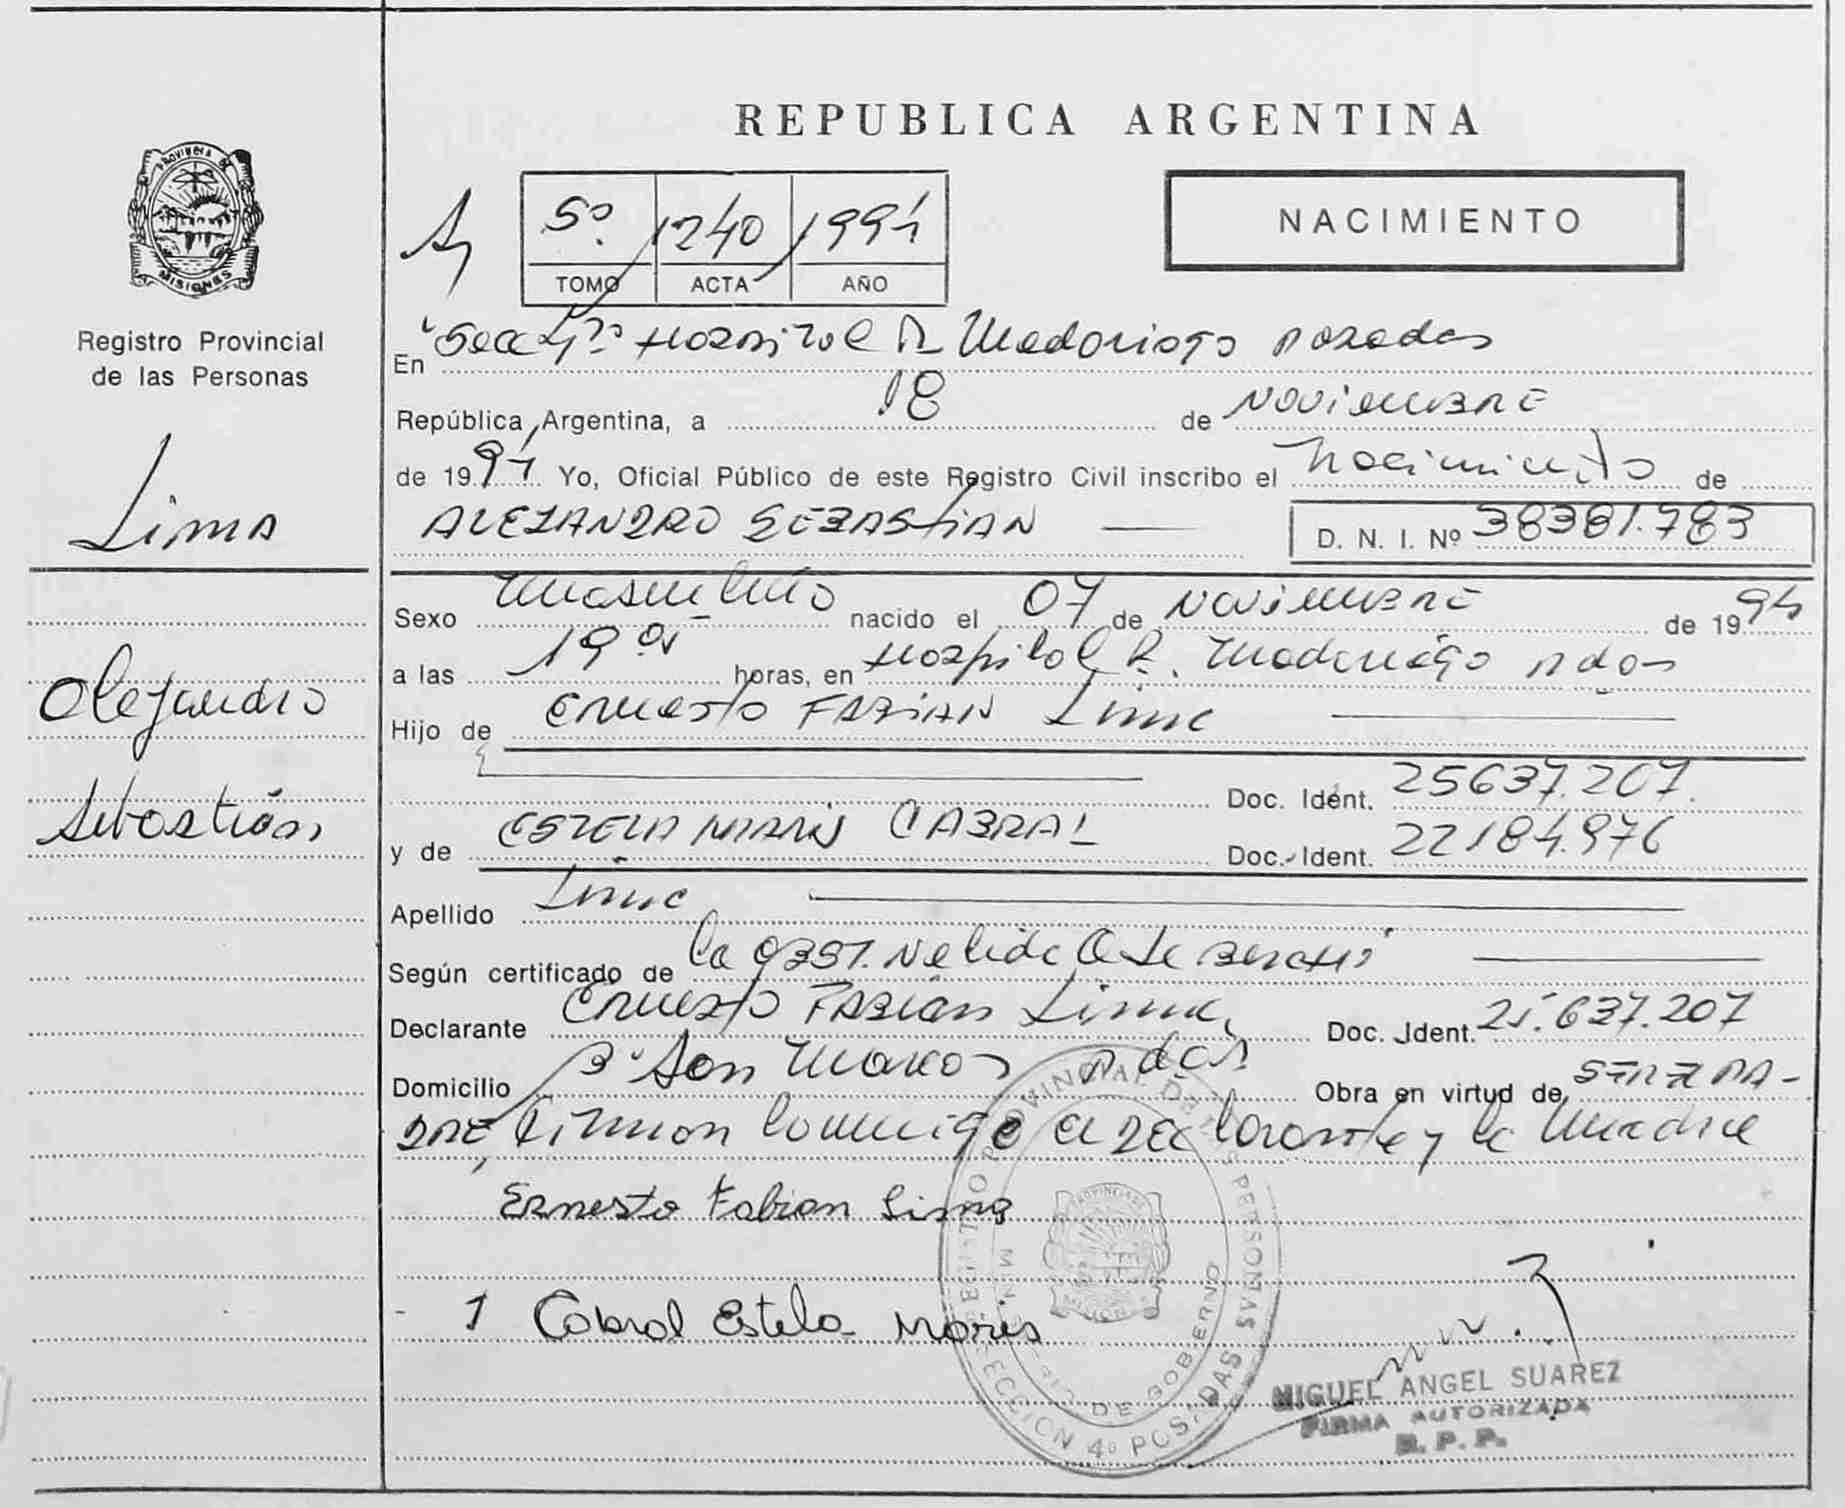 REPUBLICA ARGENTINA
PROVINCIA DE
MISIONES
Registro Provincial
de las Personas
Lima
Alejandro
Sebastián
5º 1240 1994
TOMO ACTA AÑO
NACIMIENTO
En Secc 4ta Hospital R Madariaga Posadas
República Argentina, a 18 de Noviembre
de 1994 Yo, Oficial Público de este Registro Civil inscribo el Nacimiento de
ALEJANDRO SEBASTIAN D. N. I. Nº 38381.783
Sexo Masculino nacido el 07 de Noviembre de 1994
a las 19 horas, en Hospital R. Madariaga Pdas
Hijo de Ernesto FABIAN Lima
Doc. Idént. 25637.207.
y de ESTELA MARIS CABRAL Doc. Ident. 22184.976
Apellido Lima
Según certificado de la OBST. Nelida de
Declarante Ernesto FABIAN Lima Doc. Ident. 25.637.207
Domicilio Bº San Marcos Pdas Obra en virtud de SER EL PA-
DRE, Firman conmigo el declarante y la Madre
Ernesto Fabian Lima
Cabral Estela Maris
REGISTRO PROVINCIAL DE LAS PERSONAS
SECCION 4º POSADAS
DE GOBIERNO
MIGUEL ANGEL SUAREZ
FIRMA AUTORIZADA
R. P. P.